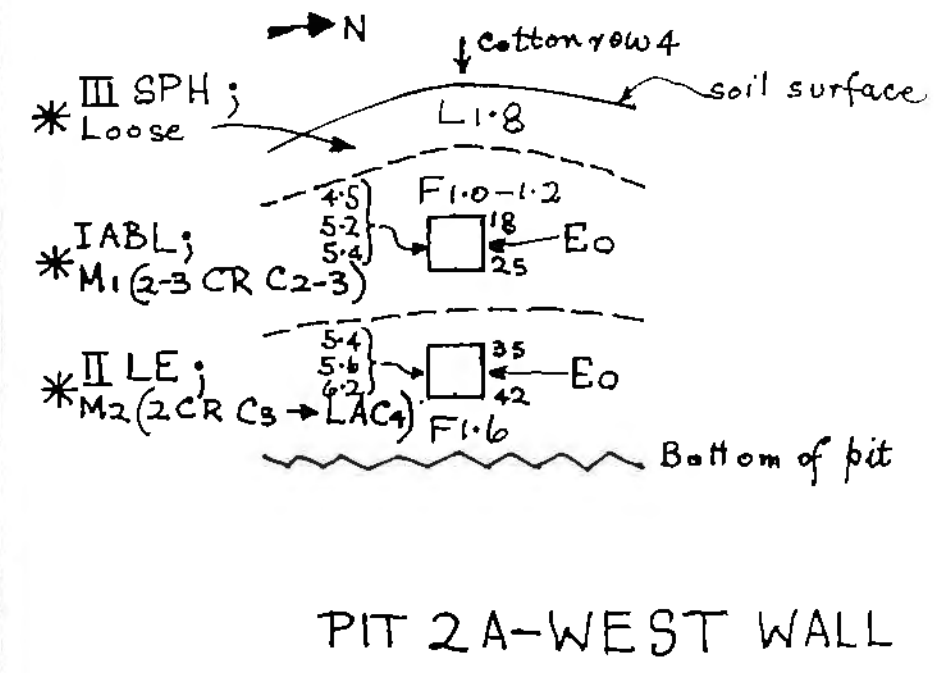 N
cotton row 4
III SPH;
Loose
soil surface
L1.8
F1.0-1.2
4.5
5.2
5.4
18
25
Eo
IABL;
M1(2-3 CR C2-3)
5.4
5.6
6.2
35
42
Eo
II LE;
M2(2CR C3→LAC4)
F1.6
Bottom of pit
PIT 2A-WEST WALL